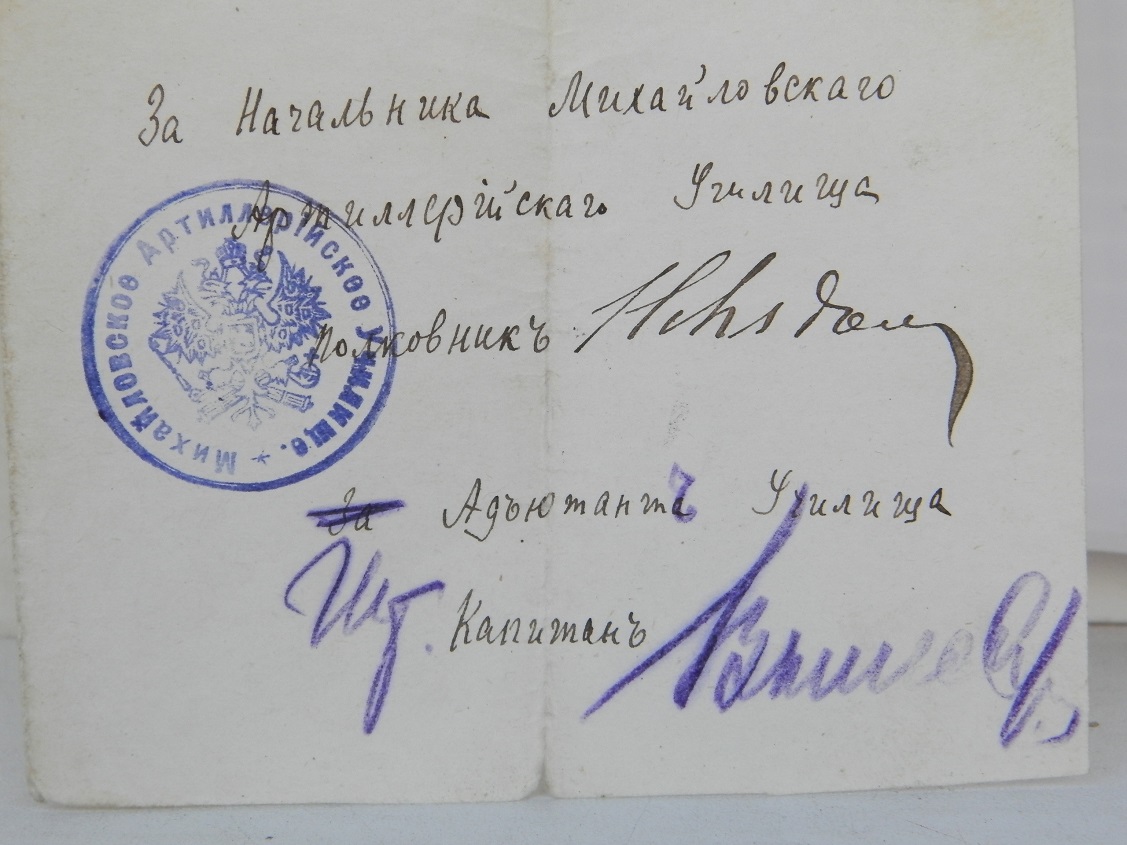 За Начальника Михайловскаго
Артиллерійскаго Училища
полковникъ
Михайловское Артиллерійское Училище.
За Адъютантъ Училища
Шт. Капитанъ